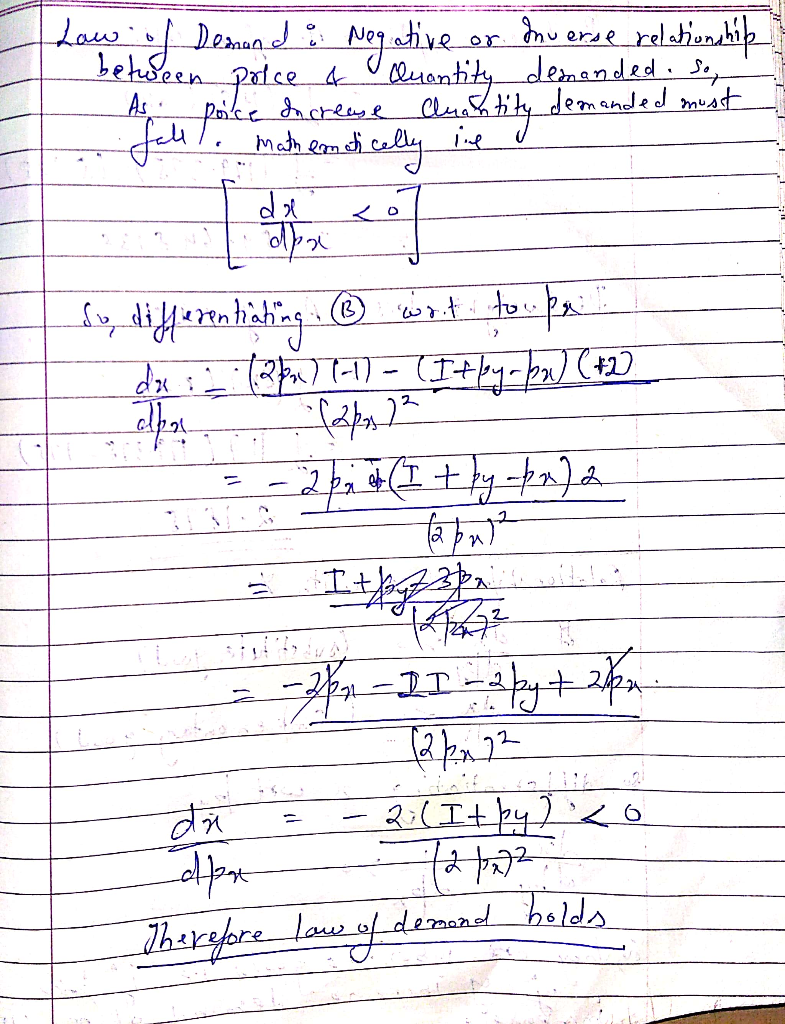 Law of Demand : Negative or Inverse relationship
between price & Quantity demanded. So,
As price Increase Quantity demanded must
fall. mathematically i.e
[ dx/dpx < 0 ]
So, differentiating (B) w.r.t to px
dx/dpx = (2px) (-1) - (I + py - px) (+2) / (2px)²
= - 2px - (I + py - px) 2 / (2px)²
= I + py - 3px / (2px)²
= -2px - 2I - 2py + 2px / (2px)²
dx/dpx = - 2 (I + py) / (2px)² < 0
Therefore law of demand holds